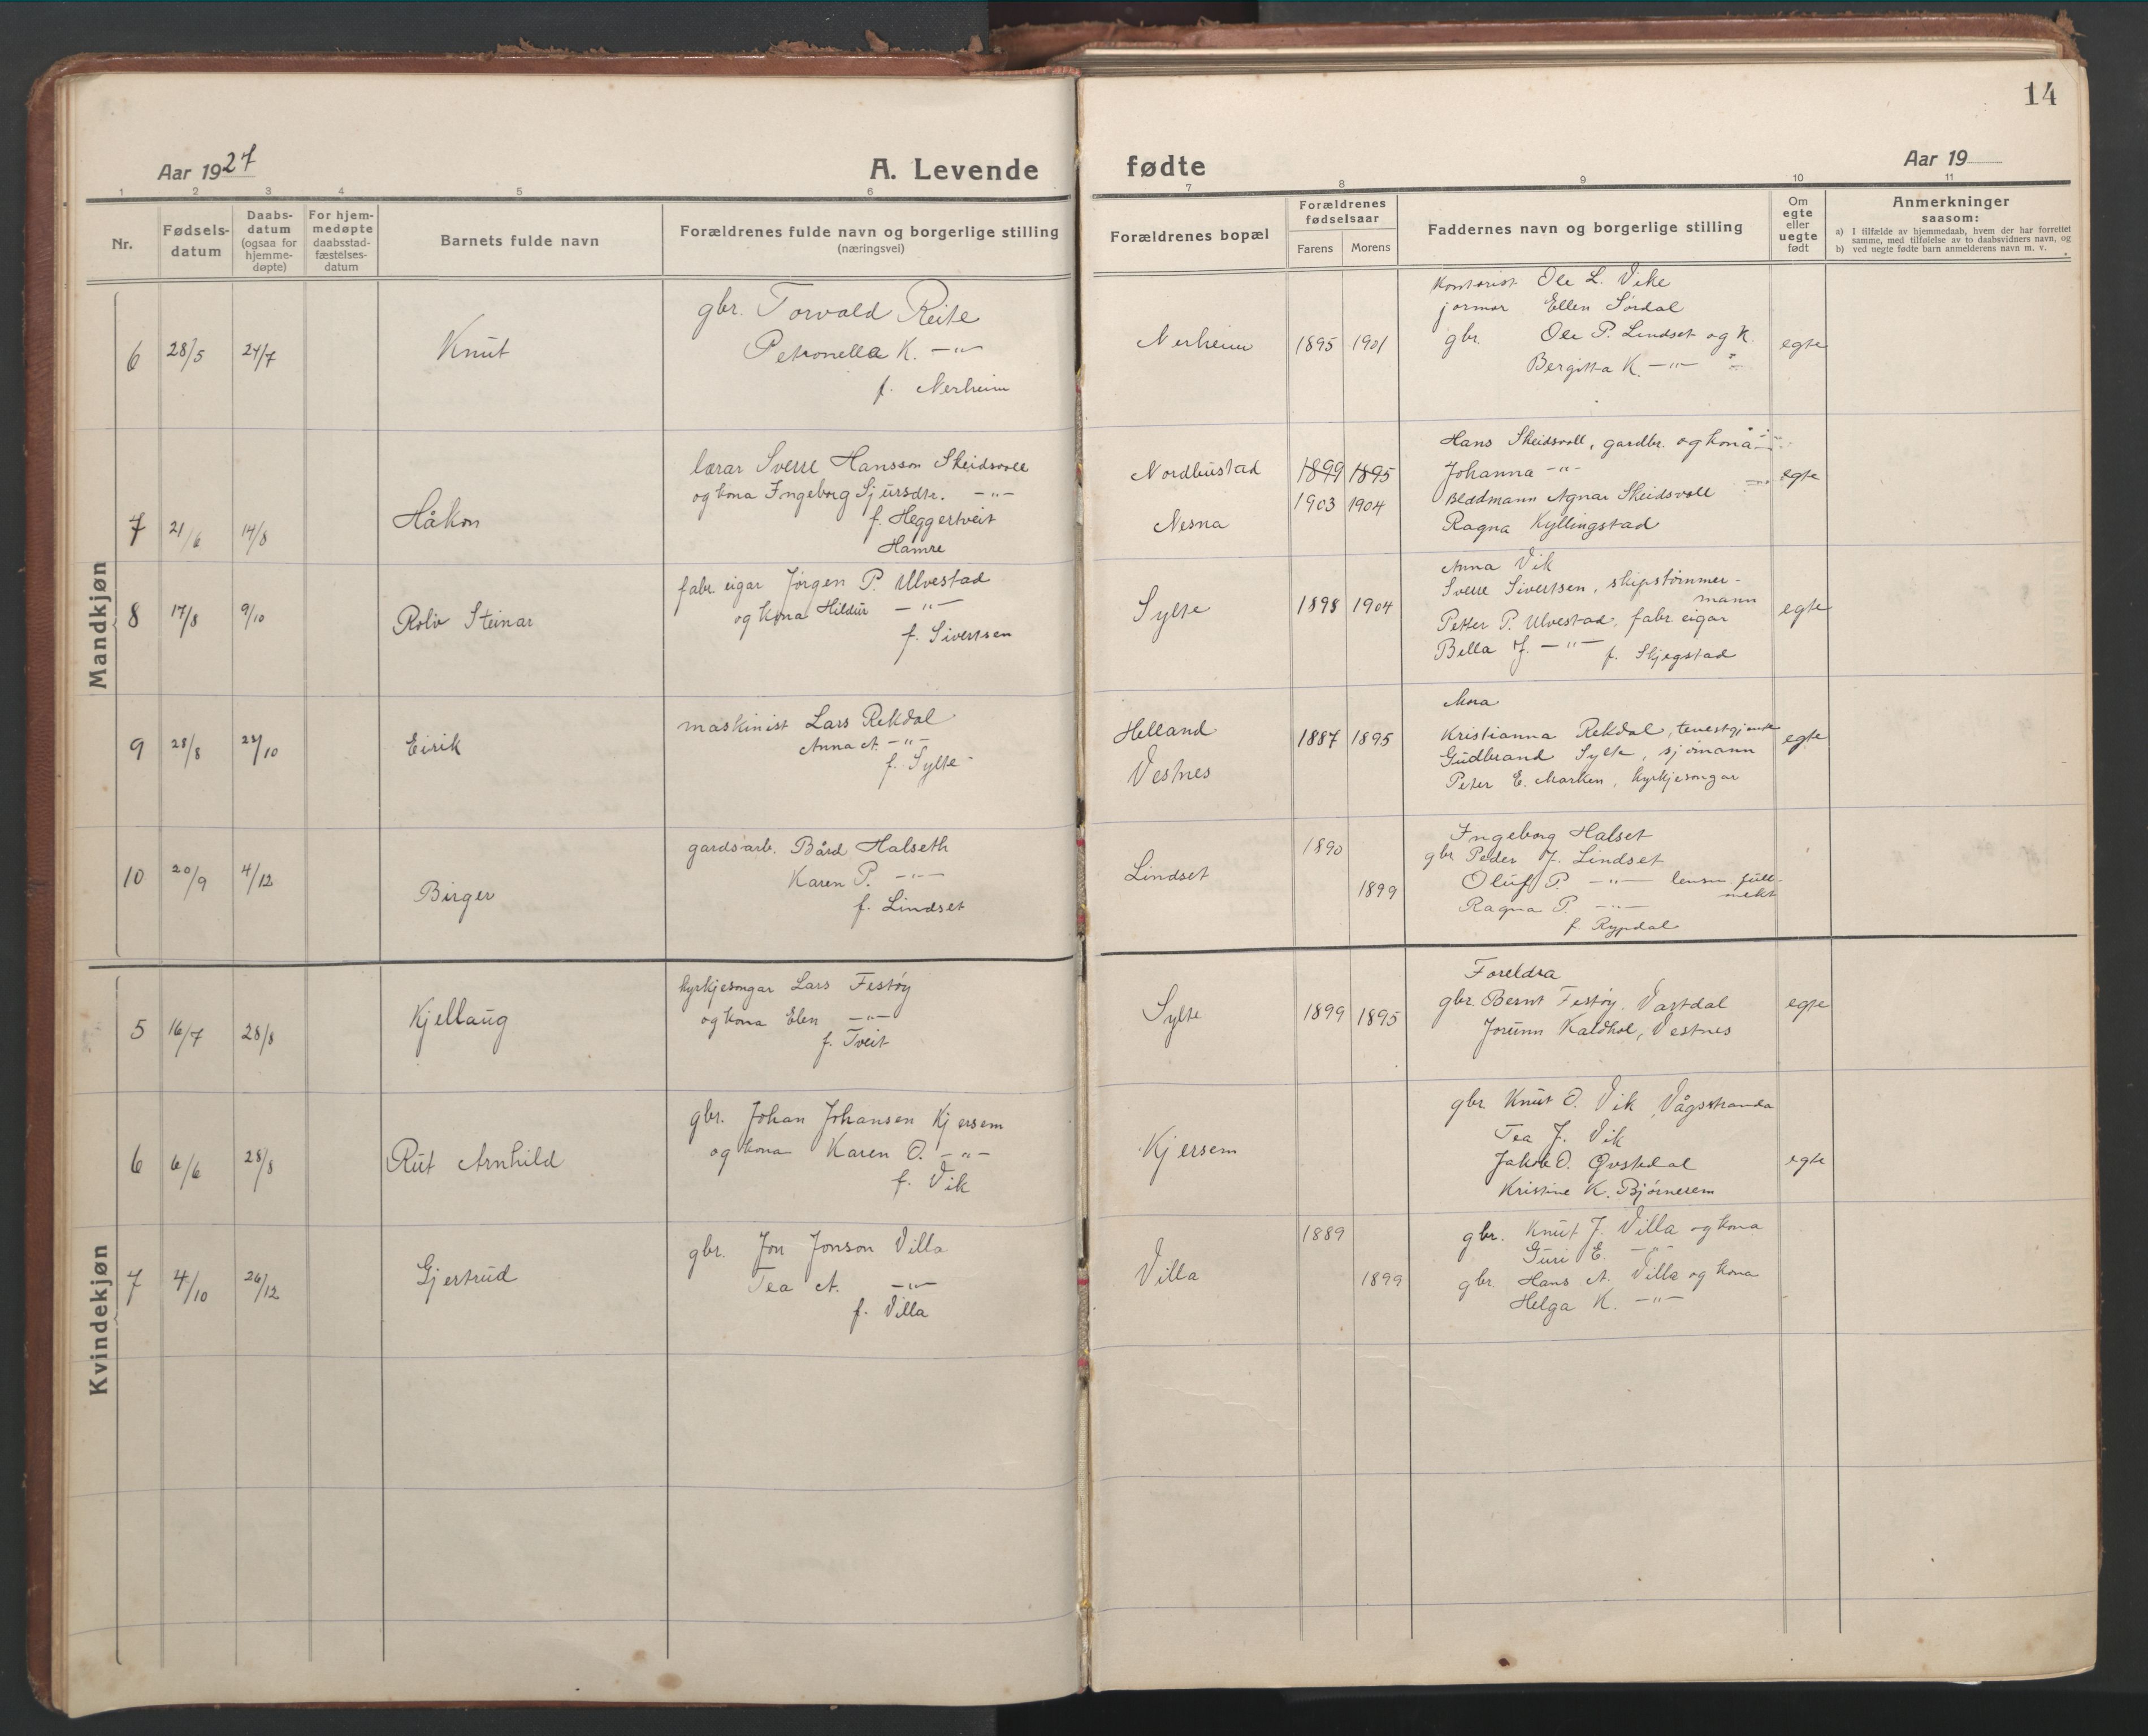 14
Aar 1927
A. Levende fødte
Aar 19
1 2 3 4 5 6 7 8 9 10 11
Nr.
Fødsels-
datum
Daabs-
datum
(ogsaa for
hjemme-
døpte)
For hjem-
medøpte
daabsstad-
fæstelses-
datum
Barnets fulde navn
Forældrenes fulde navn og borgerlige stilling
(næringsvei)
Forældrenes bopæl
Forældrenes
fødselsaar
Farens
Morens
Faddernes navn og borgerlige stilling
Om
egte
eller
uegte
født
Anmerkninger
saasom:
a) I tilfælde av hjemmedaab, hvem der har forrettet
samme, med tilføielse av to daabsvidners navn, og
b) ved uegte fødte barn anmelderens navn m. v.
Mandkjøn
6 28/5 24/7 Knut
gbr. Torvald Reite
Petronella K. -"-
f. Nerheim
Nerheim 1895 1901
Kontorist Ole L. Vike
jormor Ellen Sørdal
gbr. Ole P. Lindset og K.
Bergitta K. -"-
egte
7 21/6 14/8 Håkon
lærar Sverre Hansson Skeidsvoll
og kona Ingeborg Sjursdtr. -"-
f. Heggertveit
Hamre
Nordhustad
Nesna
1899 1895
1903 1904
Hans Skeidsvoll, gardbr. og kona
Johanna -"-
Bladmann Agnar Skeidsvoll
Ragna Kyllingstad
egte
8 17/8 9/10 Rolv Steinar
fabr. eigar Jørgen P. Ulvestad
og kona Hildur -"-
f. Sivertsen
Sylte 1898 1904
Anna Vik
Sverre Sivertsen, skipstømmer-
mann
Petter P. Ulvestad, fabr. eigar
Bella J. -"- f. Skjegstad
egte
9 28/8 23/10 Eirik
maskinist Lars Rekdal
Anna A. -"-
f. Sylte
Helland
Vestnes
1887 1895
Mora
Kristianna Rekdal, tenestgjente
Gudbrand Sylte, sjømann
Peter E. Marken, kyrkjesongar
egte
10 20/9 4/12 Birger
gardsarb. Bård Halseth
Karen P. -"-
f. Lindset
Lindset 1890
1899
Ingeborg Halset
gbr Peder J. Lindset
Oluf P. -"- lensm. full-
mekt
Ragna P. -"-
f. Rypdal
Kvindekjøn
5 16/7 28/8 Kjellaug
kyrkjesongar Lars Festøy
og kona Elen -"-
f. Tveit
Sylte 1899 1895
Foreldra
gbr. Bernt Festøy, Vartdal
Jorunn Kaldhol, Vestnes
egte
6 6/6 28/8 Rut Arnhild
gbr. Johan Johansen Kjersem
og kona Karen O. -"-
f. Vik
Kjersem
gbr. Knut O. Vik, Vågstranda
Tea J. Vik
Jakob O. Øvstedal
Kristine K. Bjørnerem
egte
7 4/10 26/12 Gjertrud
gbr. Jon Jonson Villa
Tea A. -"-
f. Villa
Villa 1889
1899
gbr. Knut J. Villa og kona
Guri E. -"-
gbr. Hans A. Villa og kona
Helga K. -"-